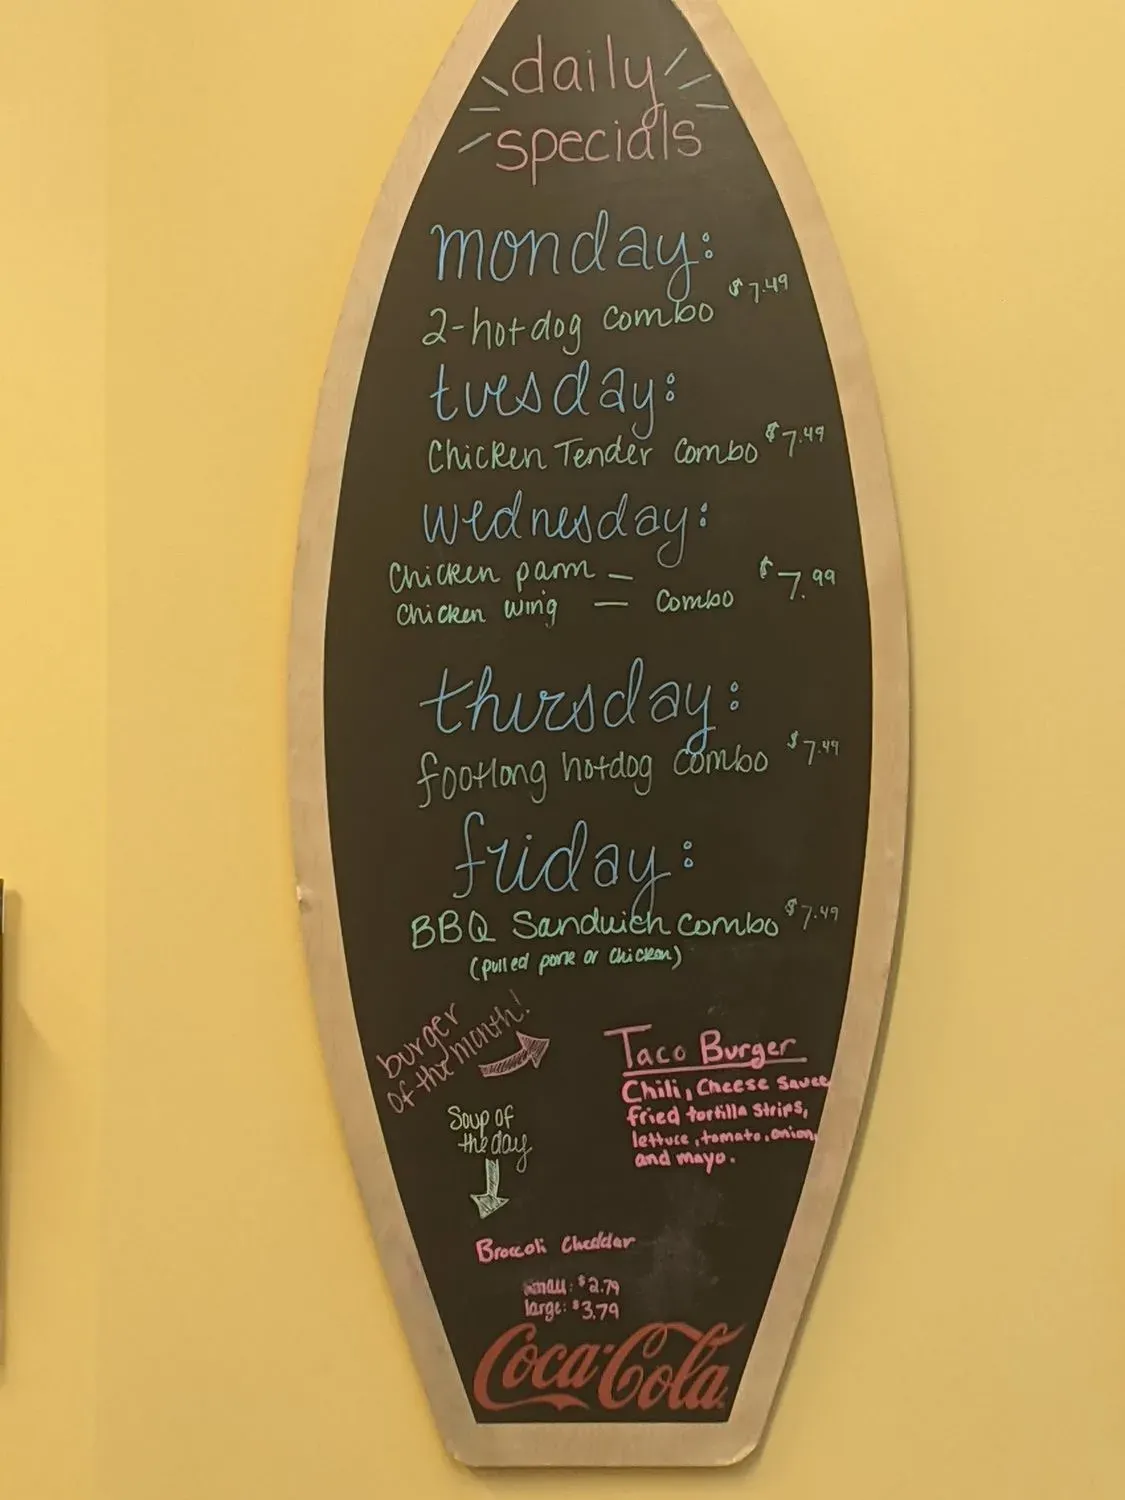 daily
specials
monday:
2-hotdog combo $7.49
tuesday:
Chicken Tender Combo $7.49
wednesday:
Chicken parm –
Chicken wing – Combo $7.99
thursday:
footlong hotdog combo $7.49
friday:
BBQ Sandwich Combo $7.49
(pulled pork or chicken)
burger
of the month!
Taco Burger
Chili, Cheese Sauce
fried tortilla strips,
lettuce, tomato, onion,
and mayo.
Soup of
the day
Broccoli Cheddar
small: $2.79
large: $3.79
Coca-Cola